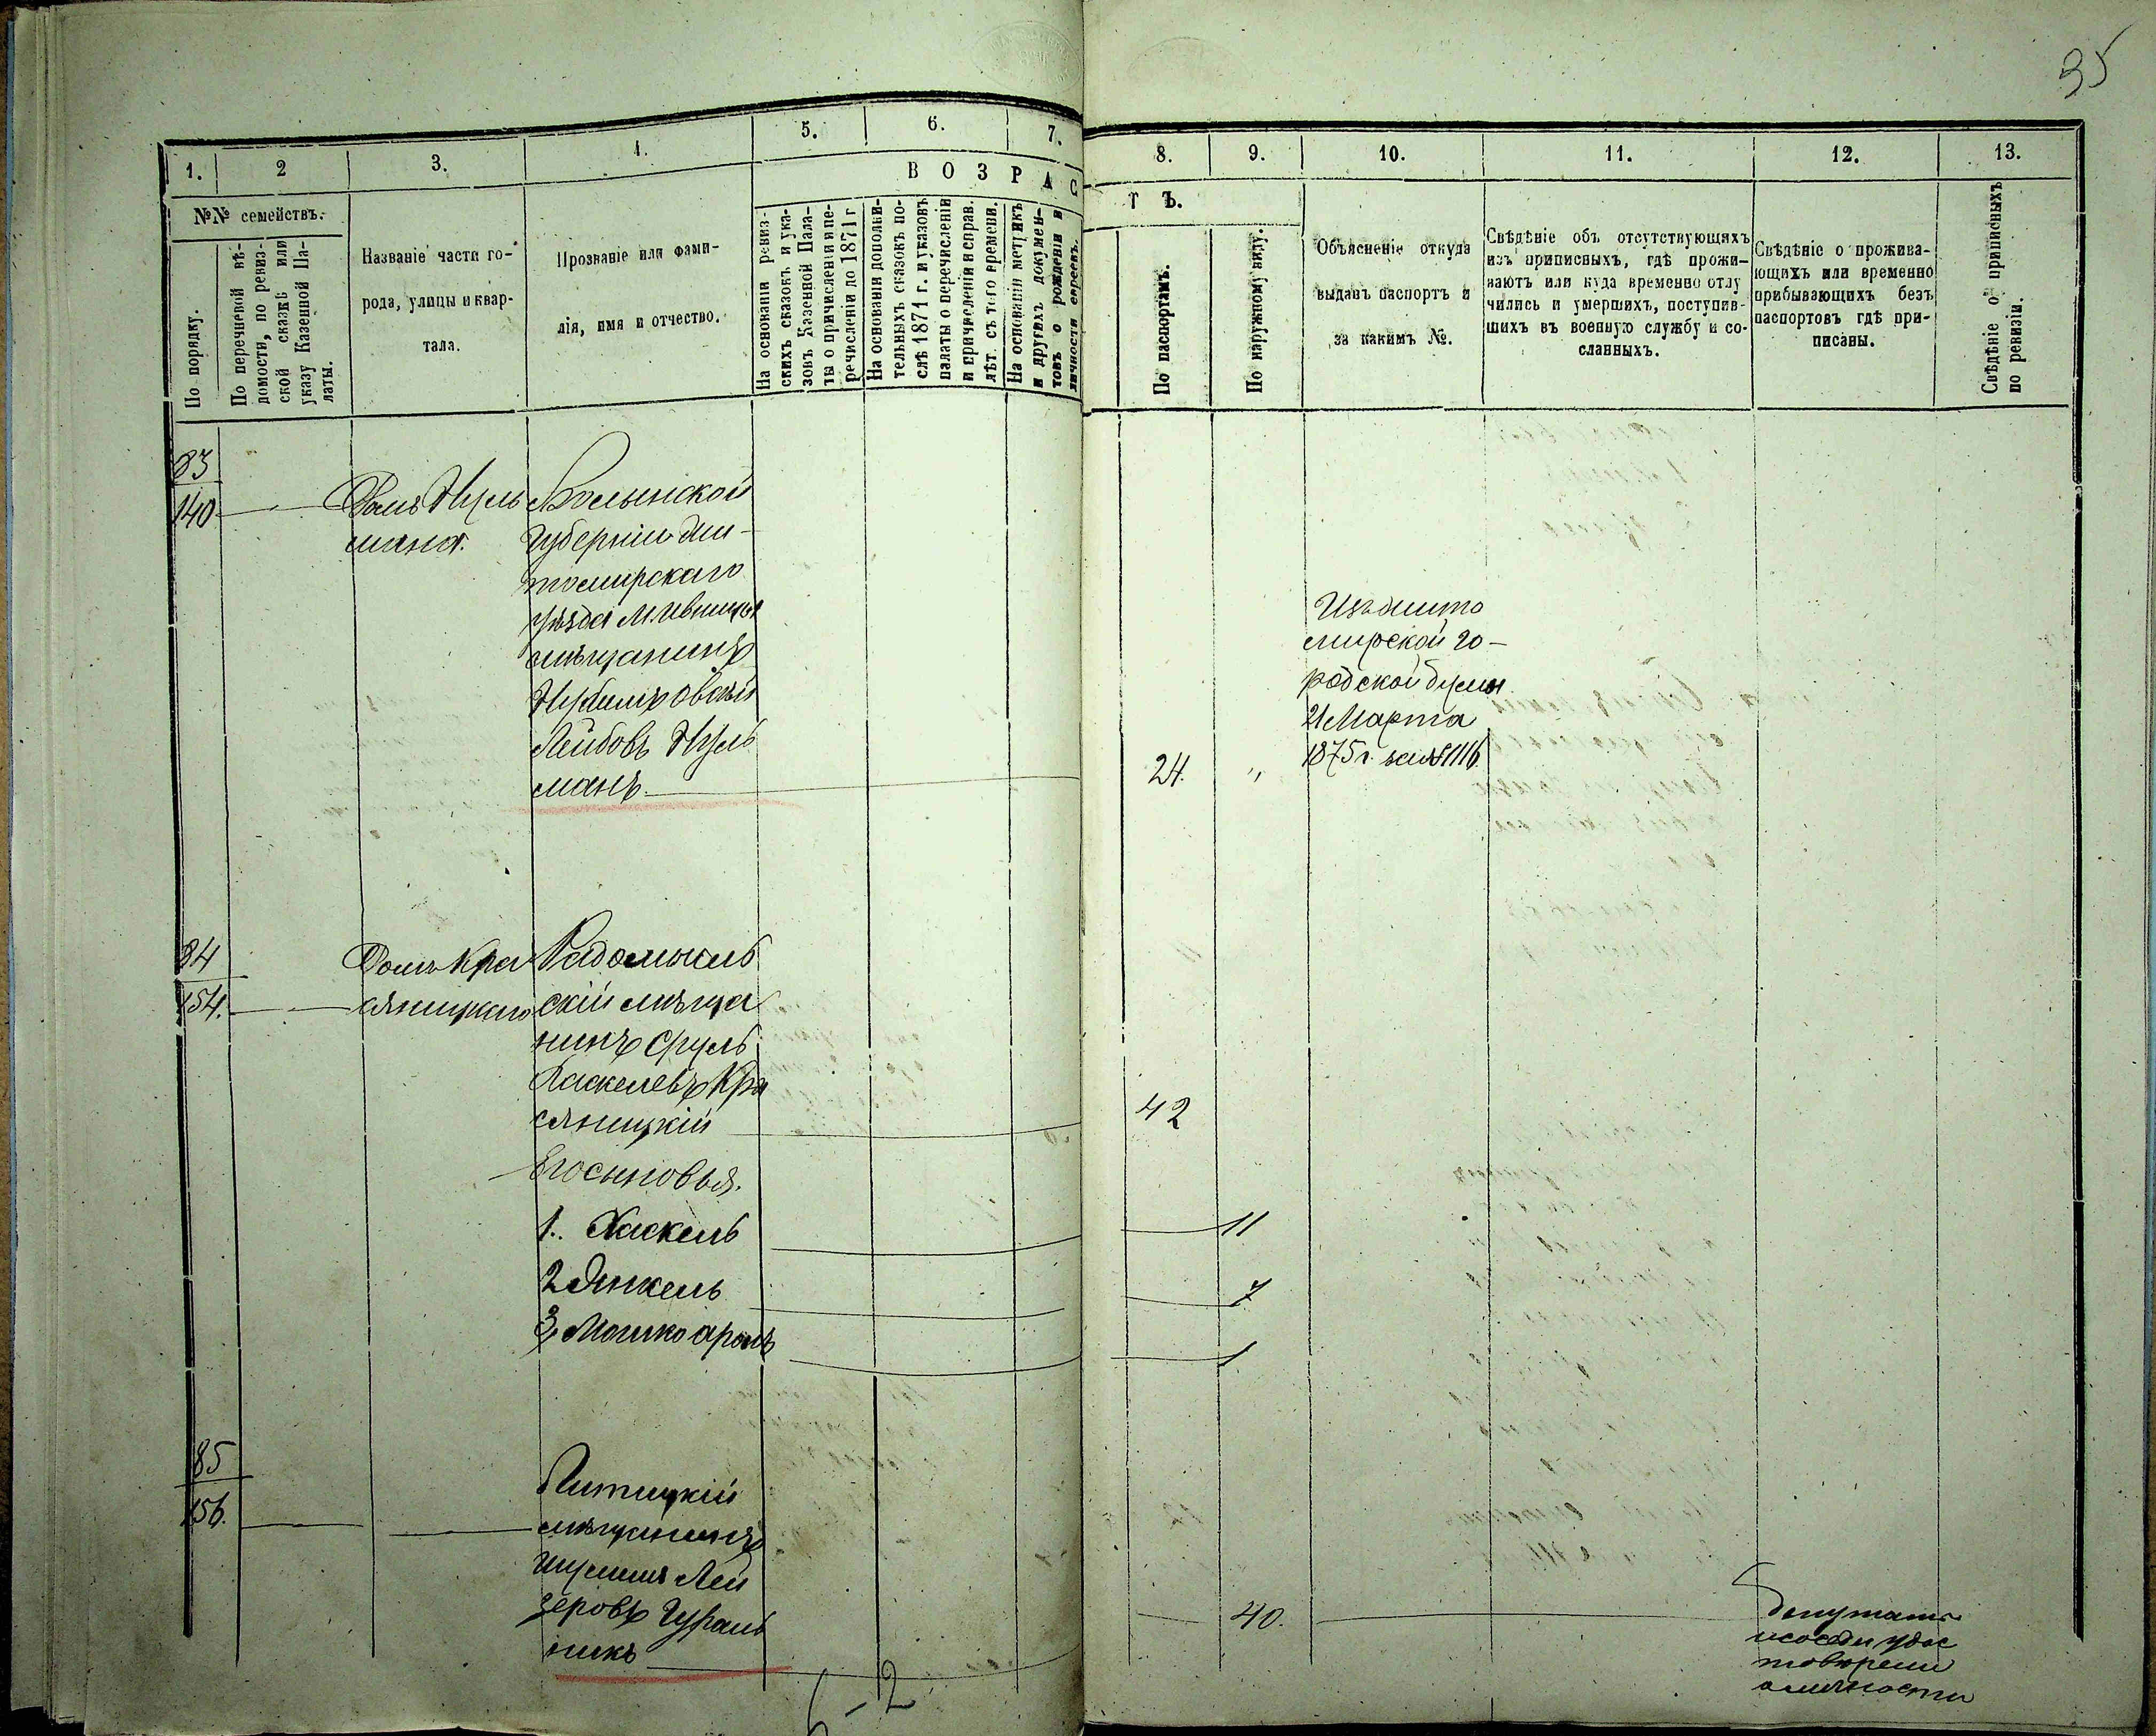 35
1.
2
3.
4.
5.
6.
7.
8.
9.
10.
11.
12.
13.
№№ семействъ.
ВОЗРАС
ТЪ.
По порядку.
По перечневой вѣ-
домости, по ревиз-
ской сказкѣ или
указу Казенной Па-
латы.
Названіе части го-
рода, улицы и квар-
тала.
Прозваніе или фами-
лія, имя и отчество.
На основаніи ревиз-
скихъ сказокъ и ука-
зовъ Казенной Пала-
ты о причисленіи и пе-
речисленіи до 1871 г
На основаніи дополни-
тельныхъ сказокъ по-
слѣ 1871 г. и указовъ
палаты о перечисленіи
и причисленіи и справ.
лѣт. съ того времени.
На основаніи метрикъ
и другихъ докумен-
товъ о рожденіи и
личности евреевъ.
По паспортамъ.
По наружному виду.
Объясненіе откуда
выданъ паспортъ и
за какимъ №.
Свѣдѣніе объ отсутствующихъ
изъ приписныхъ, гдѣ прожи-
ваютъ или куда временно отлу
чились и умершихъ, поступив-
шихъ въ военную службу и со-
сланныхъ.
Свѣдѣніе о прожива-
ющихъ или временно
прибывающихъ безъ
паспортовъ гдѣ при-
писаны.
Свѣдѣніе о приписныхъ
по ревизіи.
83
140
Домъ Нузь
мана.
Волынской
Губерніи Жи-
томирскаго
уѣзда М. Ивницы
мѣщанинъ
Овсѣй
Лейбовъ Нузь
манъ
24.
"
Изъ Жито
мирской го-
родской думы
21 Марта
1875 г. за № 1116
84
154.
Домъ Кра
сяницкаго
Радомысль
скій мѣща
нинъ Сруль
Хаскелевъ Кра
сяницкій
42
Его сыновья.
1. Хаскель
11
2 Янкель
7
3, Мошко аронъ
1
85
156.
мѣщанинъ
Шулимъ Лей
зеровъ Гураль
никъ
40.
депутаты
и сосѣди удос
товѣрени
о личности
5-2